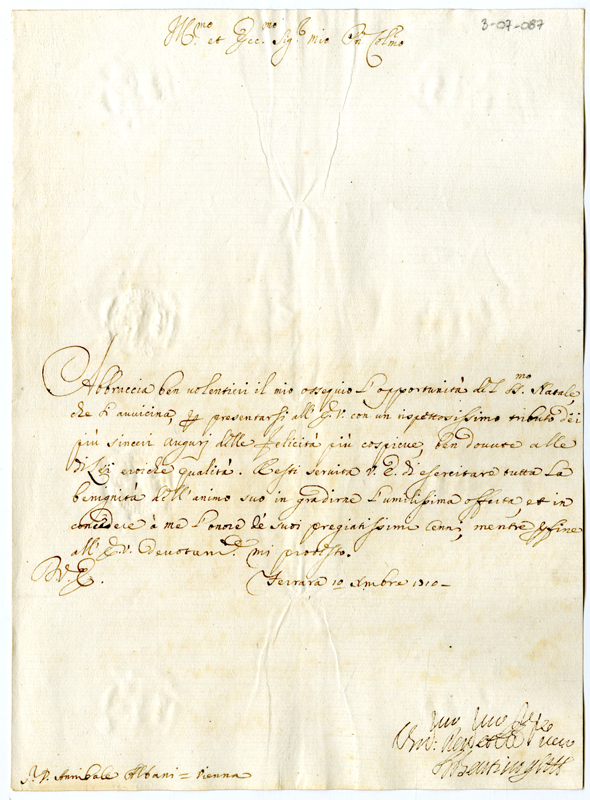 3-07-087
Ill.mo et Ecc.mo Sig.r mio Pn Colmo
Abbraccia ben volentieri il mio ossequio l'opportunità del SS.mo Natale
che s'avvicina, per presentarsi all'E.V. con un rispettosissimo tributo dei
più sinceri augurj delle felicità più cospicue, ben dovute alle
di Lei eroiche qualità. Resti servita V.E. di esercitare tutta la
benignità dell'animo suo in gradirne l'umilissima offerta, et in
concedere à me l'onore de suoi pregiatissimi cenni, mentre per fine
all'E.V. devotam.te mi protesto.
D.V.E.
Ferrara 10 Xmbre 1710
S.r D. Annibale Albani = Vienna